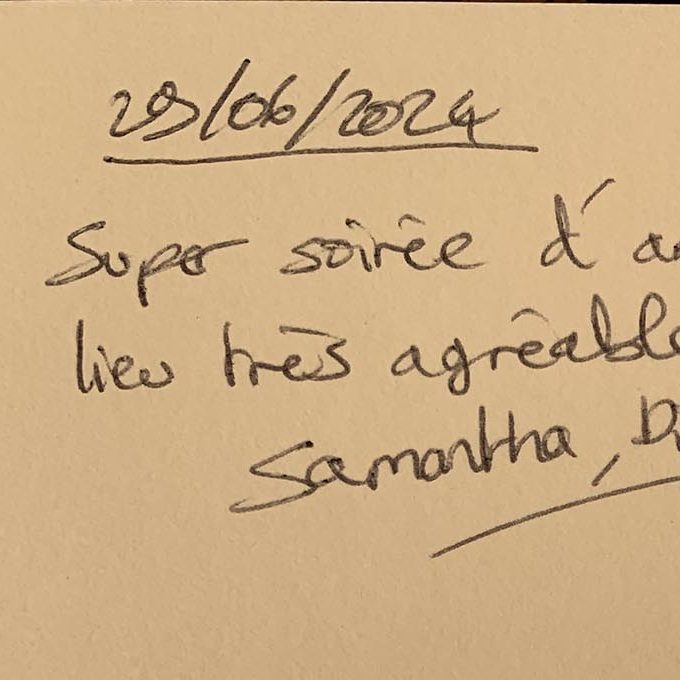 29/06/2024
Super soirée d'
lieu très agréable
Samantha,